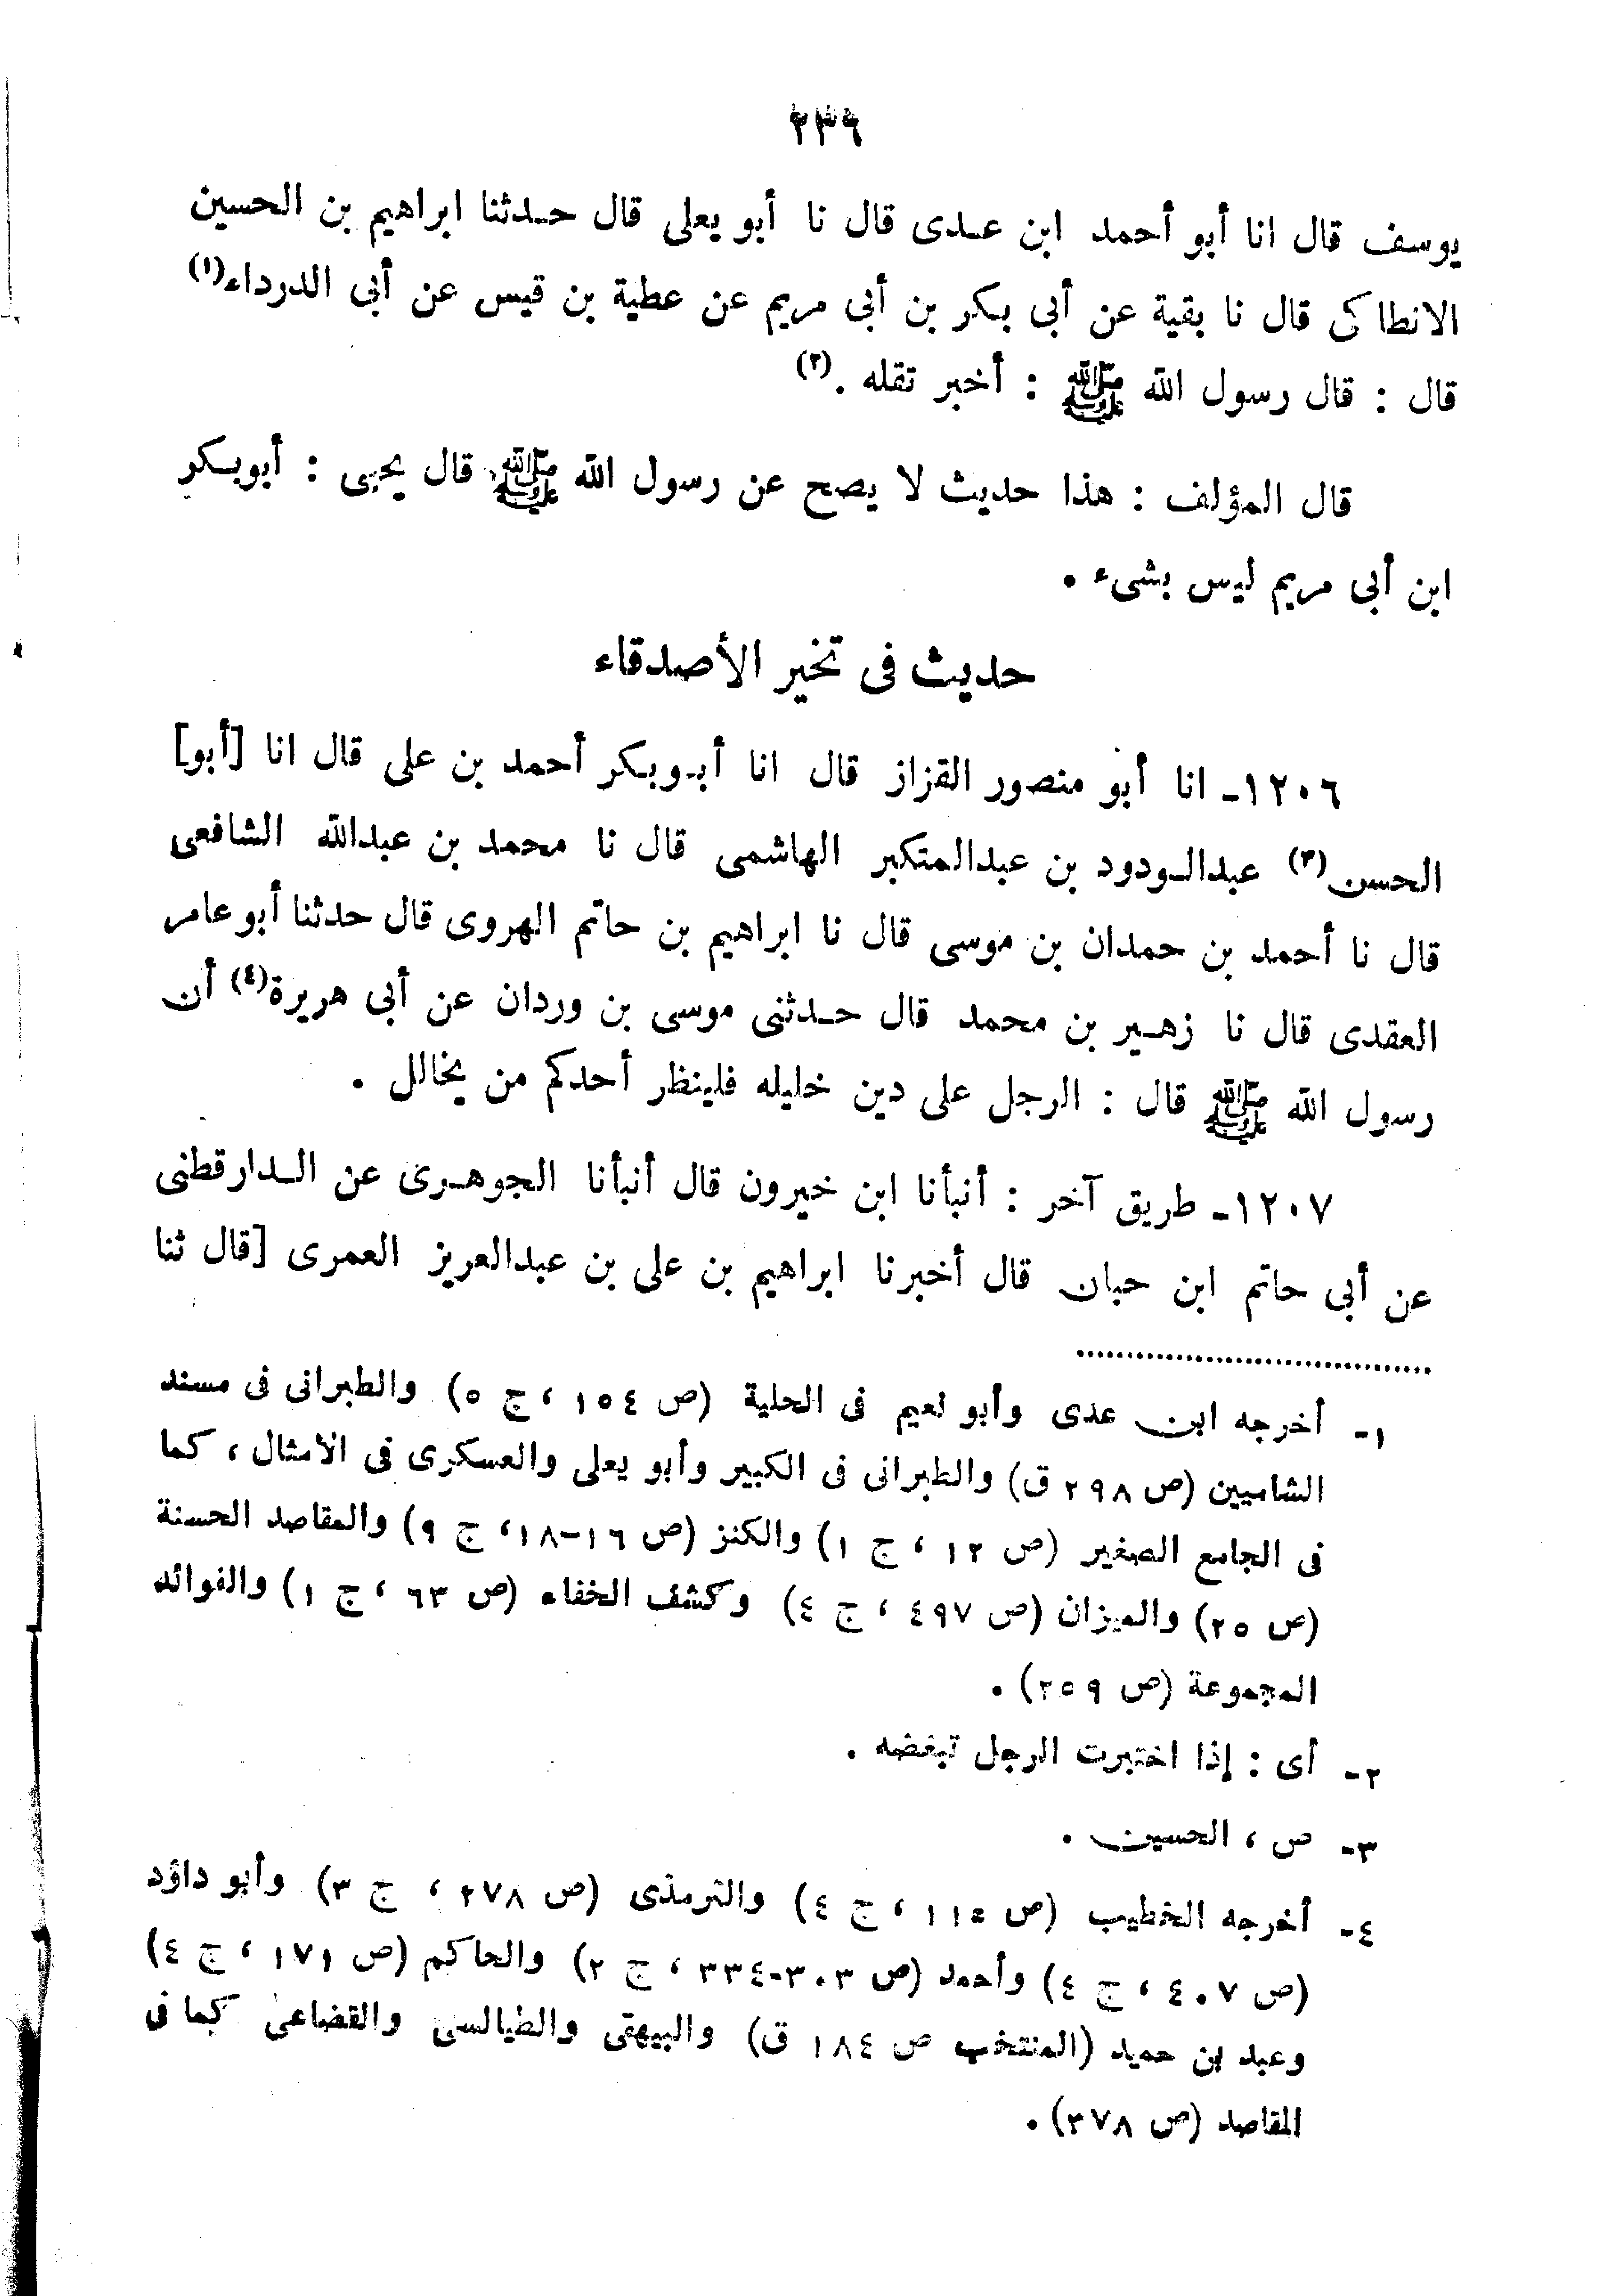 ٢٣٦
يوسف قال انا أبو أحمد ابن عدى قال نا أبو يعلى قال حدثنا ابراهيم بن الحسين
الانطاكى قال نا بقية عن أبى بكر بن أبى مريم عن عطية بن قيس عن أبى الدرداء(١)
قال : قال رسول الله ﷺ : أخبر تقله .(٢)
قال المؤلف : هذا حديث لا يصح عن رسول الله ﷺ قال يحيى : أبوبكر
ابن أبى مريم ليس بشىء .
حديث فى تخير الأصدقاء
١٢٠٦- انا أبو منصور القزاز قال انا أبوبكر أحمد بن على قال انا [أبو]
الحسن(٣) عبدالودود بن عبدالمتكبر الهاشمى قال نا محمد بن عبدالله الشافعى
قال نا أحمد بن حمدان بن موسى قال نا ابراهيم بن حاتم الهروى قال حدثنا أبو عامر
العقدى قال نا زهير بن محمد قال حدثنى موسى بن وردان عن أبى هريرة(٤) أن
رسول الله ﷺ قال : الرجل على دين خليله فلينظر أحدكم من يخالل .
١٢٠٧- طريق آخر : أنبأنا ابن خيرون قال أنبأنا الجوهرى عن الدارقطنى
عن أبى حاتم ابن حبان قال أخبرنا ابراهيم بن على بن عبدالعريز العمرى [قال ثنا
١- أخرجه ابن عدى وأبو نعيم فى الحلية (ص ١٥٤ ، ج ٥) والطبرانى فى مسند
الشاميين (ص ٢٩٨ ق) والطبرانى فى الكبير وأبو يعلى والعسكرى فى الامثال ، كما
فى الجامع الصغير (ص ١٢ ، ج ١) والكنز (ص ١٦-١٨، ج ٩) والمقاصد الحسنة
(ص ٢٥) والميزان (ص ٤٩٧ ، ج ٤) وكشف الخفاء (ص ٦٣ ، ج ١) والفوائد
المجموعة (ص ٢٥٩) .
٢- أى : إذا اختبرت الرجل تبغضه .
٣- ص ، الحسين .
٤- أخرجه الخطيب (ص ١١٥ ، ج ٤) والترمذى (ص ٢٧٨ ، ج ٣) وأبو داؤد
(ص ٤٠٧ ، ج ٤) وأحمد (ص ٣٠٣-٣٣٤ ، ج ٢) والحاكم (ص ١٧١ ، ج ٤)
وعبد بن حميد (المنتخب ص ١٨٤ ق) والبيهقى والطيالسى والقضاعى كما فى
المقاصد (ص ٣٧٨) .